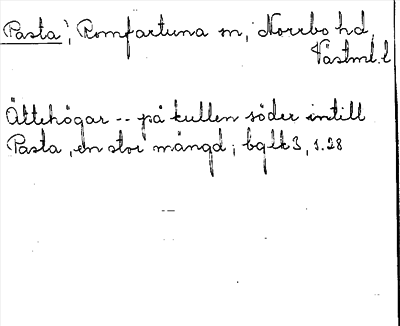 Pasta, Romfartuna sn, Norrbo hd,
Västml. l
Ättehögar -- på kullen söder intill
Pasta, en stor mängd; bglk 3, s. 28